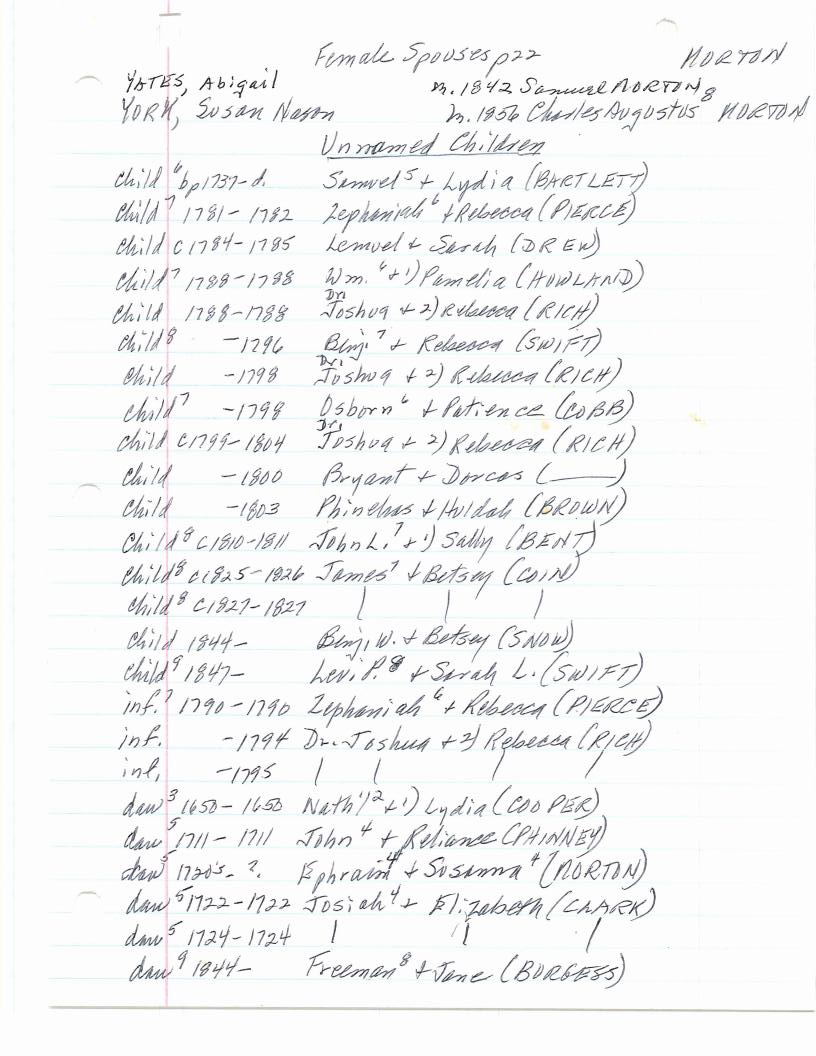 Female Spouses p22 MORTON
YATES, Abigail m. 1842 Samuel MORTON 8
YORK, Susan Nason m. 1856 Charles Augustus MORTON
Unnamed Children
child 6 bp 1737-d. Samuel 5 + Lydia (BARTLETT)
child 7 1781-1782 Zephaniah 6 + Rebecca (PIERCE)
child c 1784-1785 Lemuel + Sarah (DREW)
child 7 1788-1788 Wm. 6 + 1) Pamelia (HOWLAND)
child 1788-1788 Dr. Joshua + 2) Rebecca (RICH)
child 8 -1796 Benj. 7 + Rebecca (SWIFT)
child -1798 Dr. Joshua + 2) Rebecca (RICH)
child 7 -1798 Osborn 6 + Patience (COBB)
child c1799-1804 Dr. Joshua + 2) Rebecca (RICH)
child -1800 Bryant + Dorcas (____)
child -1803 Phinehas + Huldah (BROWN)
child 8 c1810-1811 John L. 7 + 1) Sally (BENT)
child 8 c1825-1826 James 7 + Betsey (COIN)
child 8 c1827-1827 | | |
child 1844- Benj. W. + Betsey (SNOW)
child 9 1847- Levi P. 8 + Sarah L. (SWIFT)
inf. 7 1790-1790 Zephaniah 6 + Rebecca (PIERCE)
inf. -1794 Dr. Joshua + 2) Rebecca (RICH)
inf. -1795 | | | |
dau 3 1650-1650 Nath'l 2 + 1) Lydia (COOPER)
dau 5 1711-1711 John 4 + Reliance (PHINNEY)
dau 5 1720's-?. Ephraim 4 + Susanna 4 (MORTON)
dau 5 1722-1722 Josiah 4 + Elizabeth (CLARK)
dau 5 1724-1724 | | |
dau 9 1844- Freeman 8 + Jane (BURGESS)